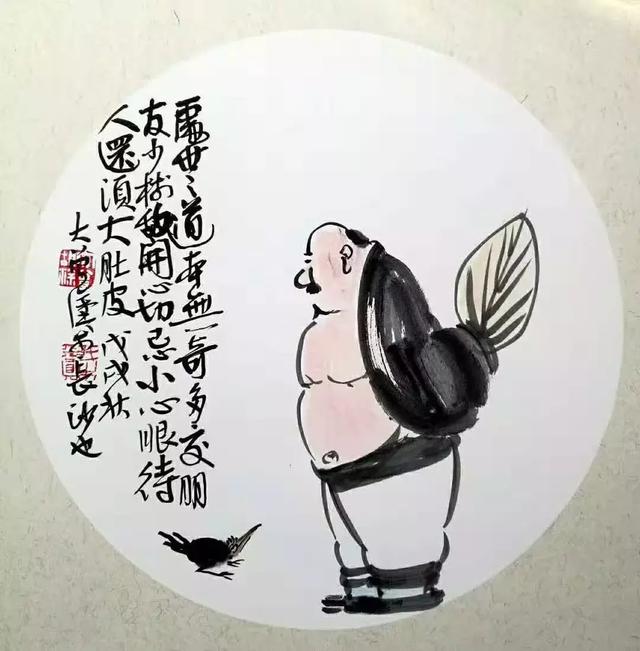 處世之道本無奇多交朋
友少樹敵開心切忌小心眼待
人還須大肚皮戊戌秋
大 長沙也